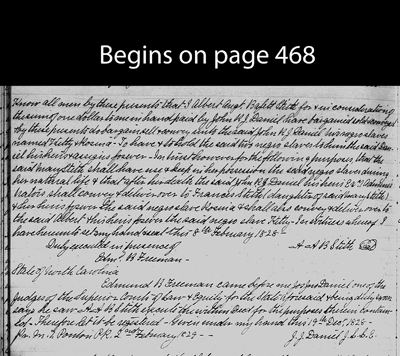 Begins on page 468
Know all men by these presents that I Albert Augt. B Stith for & in consideration of
the sum of one dollar to me in hand paid by John R J Daniel have bargained sold & conveyed
by these presents do bargain sell & convey unto the said John R J Daniel two negro slaves
named Fitty & Rosina - To have & to hold the said two negro slaves to him the said Dan-
iel his heirs & assigns forever - In trust however for the following purposes that the
said Mary Stith shall have use & keep in her possession the said negro slaves during
her natural life & that after her death the said John R J Daniel his heirs Exrs Adminis-
trators shall convey & deliver over to Frances Stith daughter of said Mary Stith
& her heirs forever the said negro slave Rosina & shall also convey & deliver over to
the said Albert & his heirs forever the said negro slave Fitty - In witness whereof I
have hereunto set my hand & seal this 8th February 1828 -
Duly executed in presence of A A B Stith Seal
Edmd. B Freeman -
State of North Carolina
Edmund B Freeman came before me Joseph J Daniel one of the
Judges of the Superior Courts of Law & Equity for the State aforesaid & being duly sworn
says he saw A A B Stith execute the within Deed for the purposes therein contain-
ed - Therefore let it be registered - Given under my hand this 19th Decr, 1828 -
J. J. Daniel J. S. C. L.
2nd February 1829 -